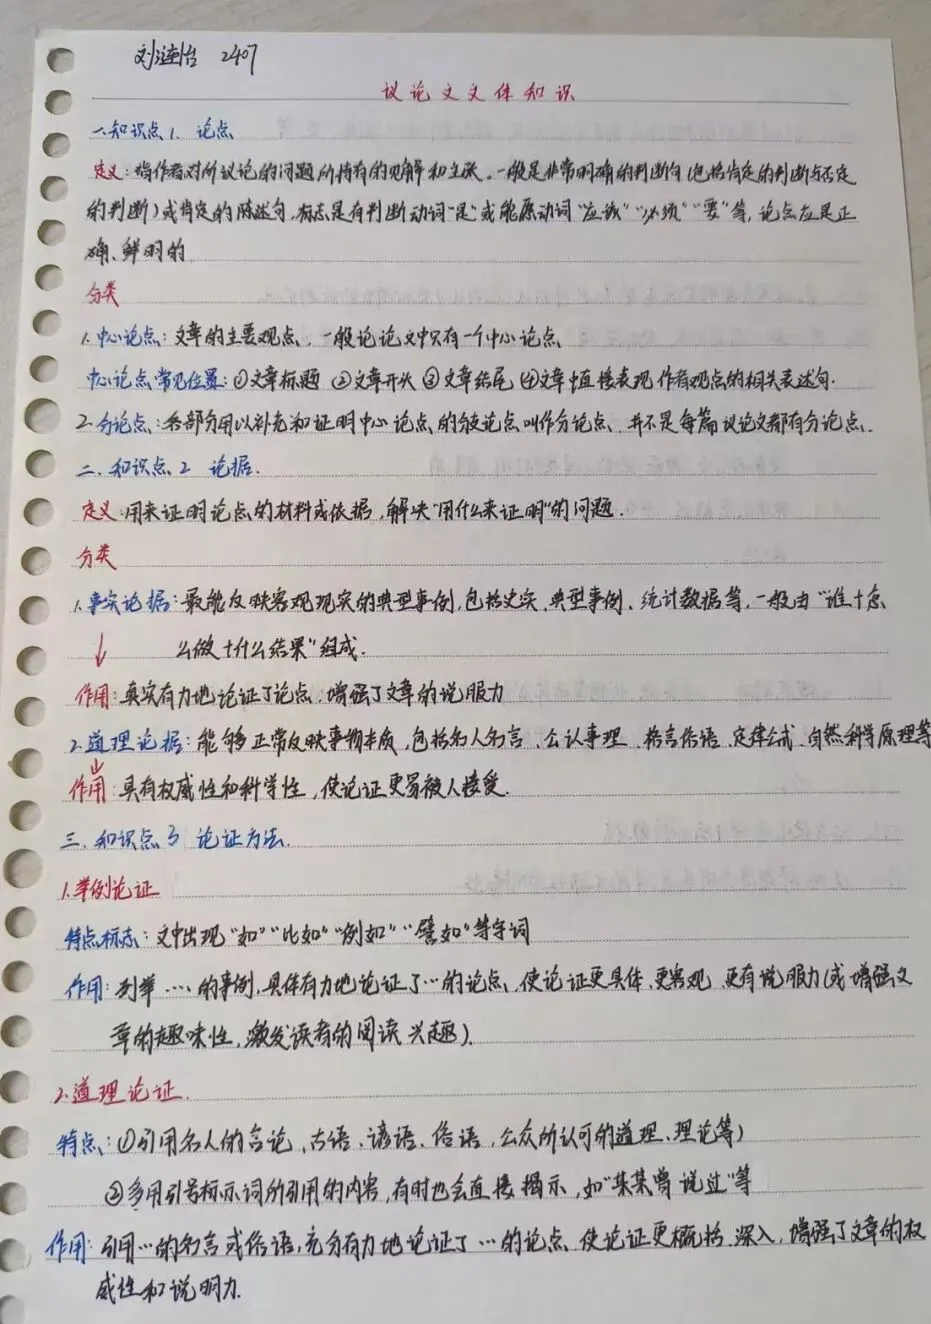 刘涟怡 2407
议论文文体知识
一.知识点1. 论点
定义:指作者对所议论的问题所持有的见解和主张。一般是非常明确的判断句(包括肯定的判断与否定
的判断)或肯定的陈述句,标志是有判断动词“是”或能愿动词“应该”“必须”“要”等,论点应是正
确、鲜明的
分类
1.中心论点:文章的主要观点,一般论论文中只有一个中心论点
中心论点常见位置:①文章标题 ②文章开头 ③文章结尾 ④文章中直接表现作者观点的相关表述句.
2.分论点:各部分用以补充和证明中心论点的分支论点叫作分论点,并不是每篇议论文都有分论点.
二、知识点2 论据.
定义:用来证明论点的材料或依据,解决“用什么来证明”的问题.
分类
1.事实论据:最能反映客观现实的典型事例,包括史实、典型事例、统计数据等,一般由“谁+怎
么做+什么结果”组成.
作用:真实有力地论证了论点,增强了文章的说服力
2.道理论据:能够正常反映事物本质,包括名人名言、公认事理、格言俗语、定律公式、自然科学原理等
作用:具有权威性和科学性,使论证更易被人接受.
三、知识点3 论证方法.
1.举例论证
特点标志:文中出现“如”“比如”“例如”“譬如”等字词
作用:列举……的事例,具体有力地论证了…的论点,使论证更具体、更客观、更有说服力(或增强文
章的趣味性,激发读者的阅读兴趣).
2.道理论证.
特点:①引用名人的言论、古语、谚语、俗语,公众所认可的道理、理论等)
②多用引号标示词所引用的内容,有时也会直接揭示,如“某某曾说过”等
作用:引用…的名言或俗语,充分有力地论证了…的论点,使论证更概括、深入,增强了文章的权
威性和说明力.